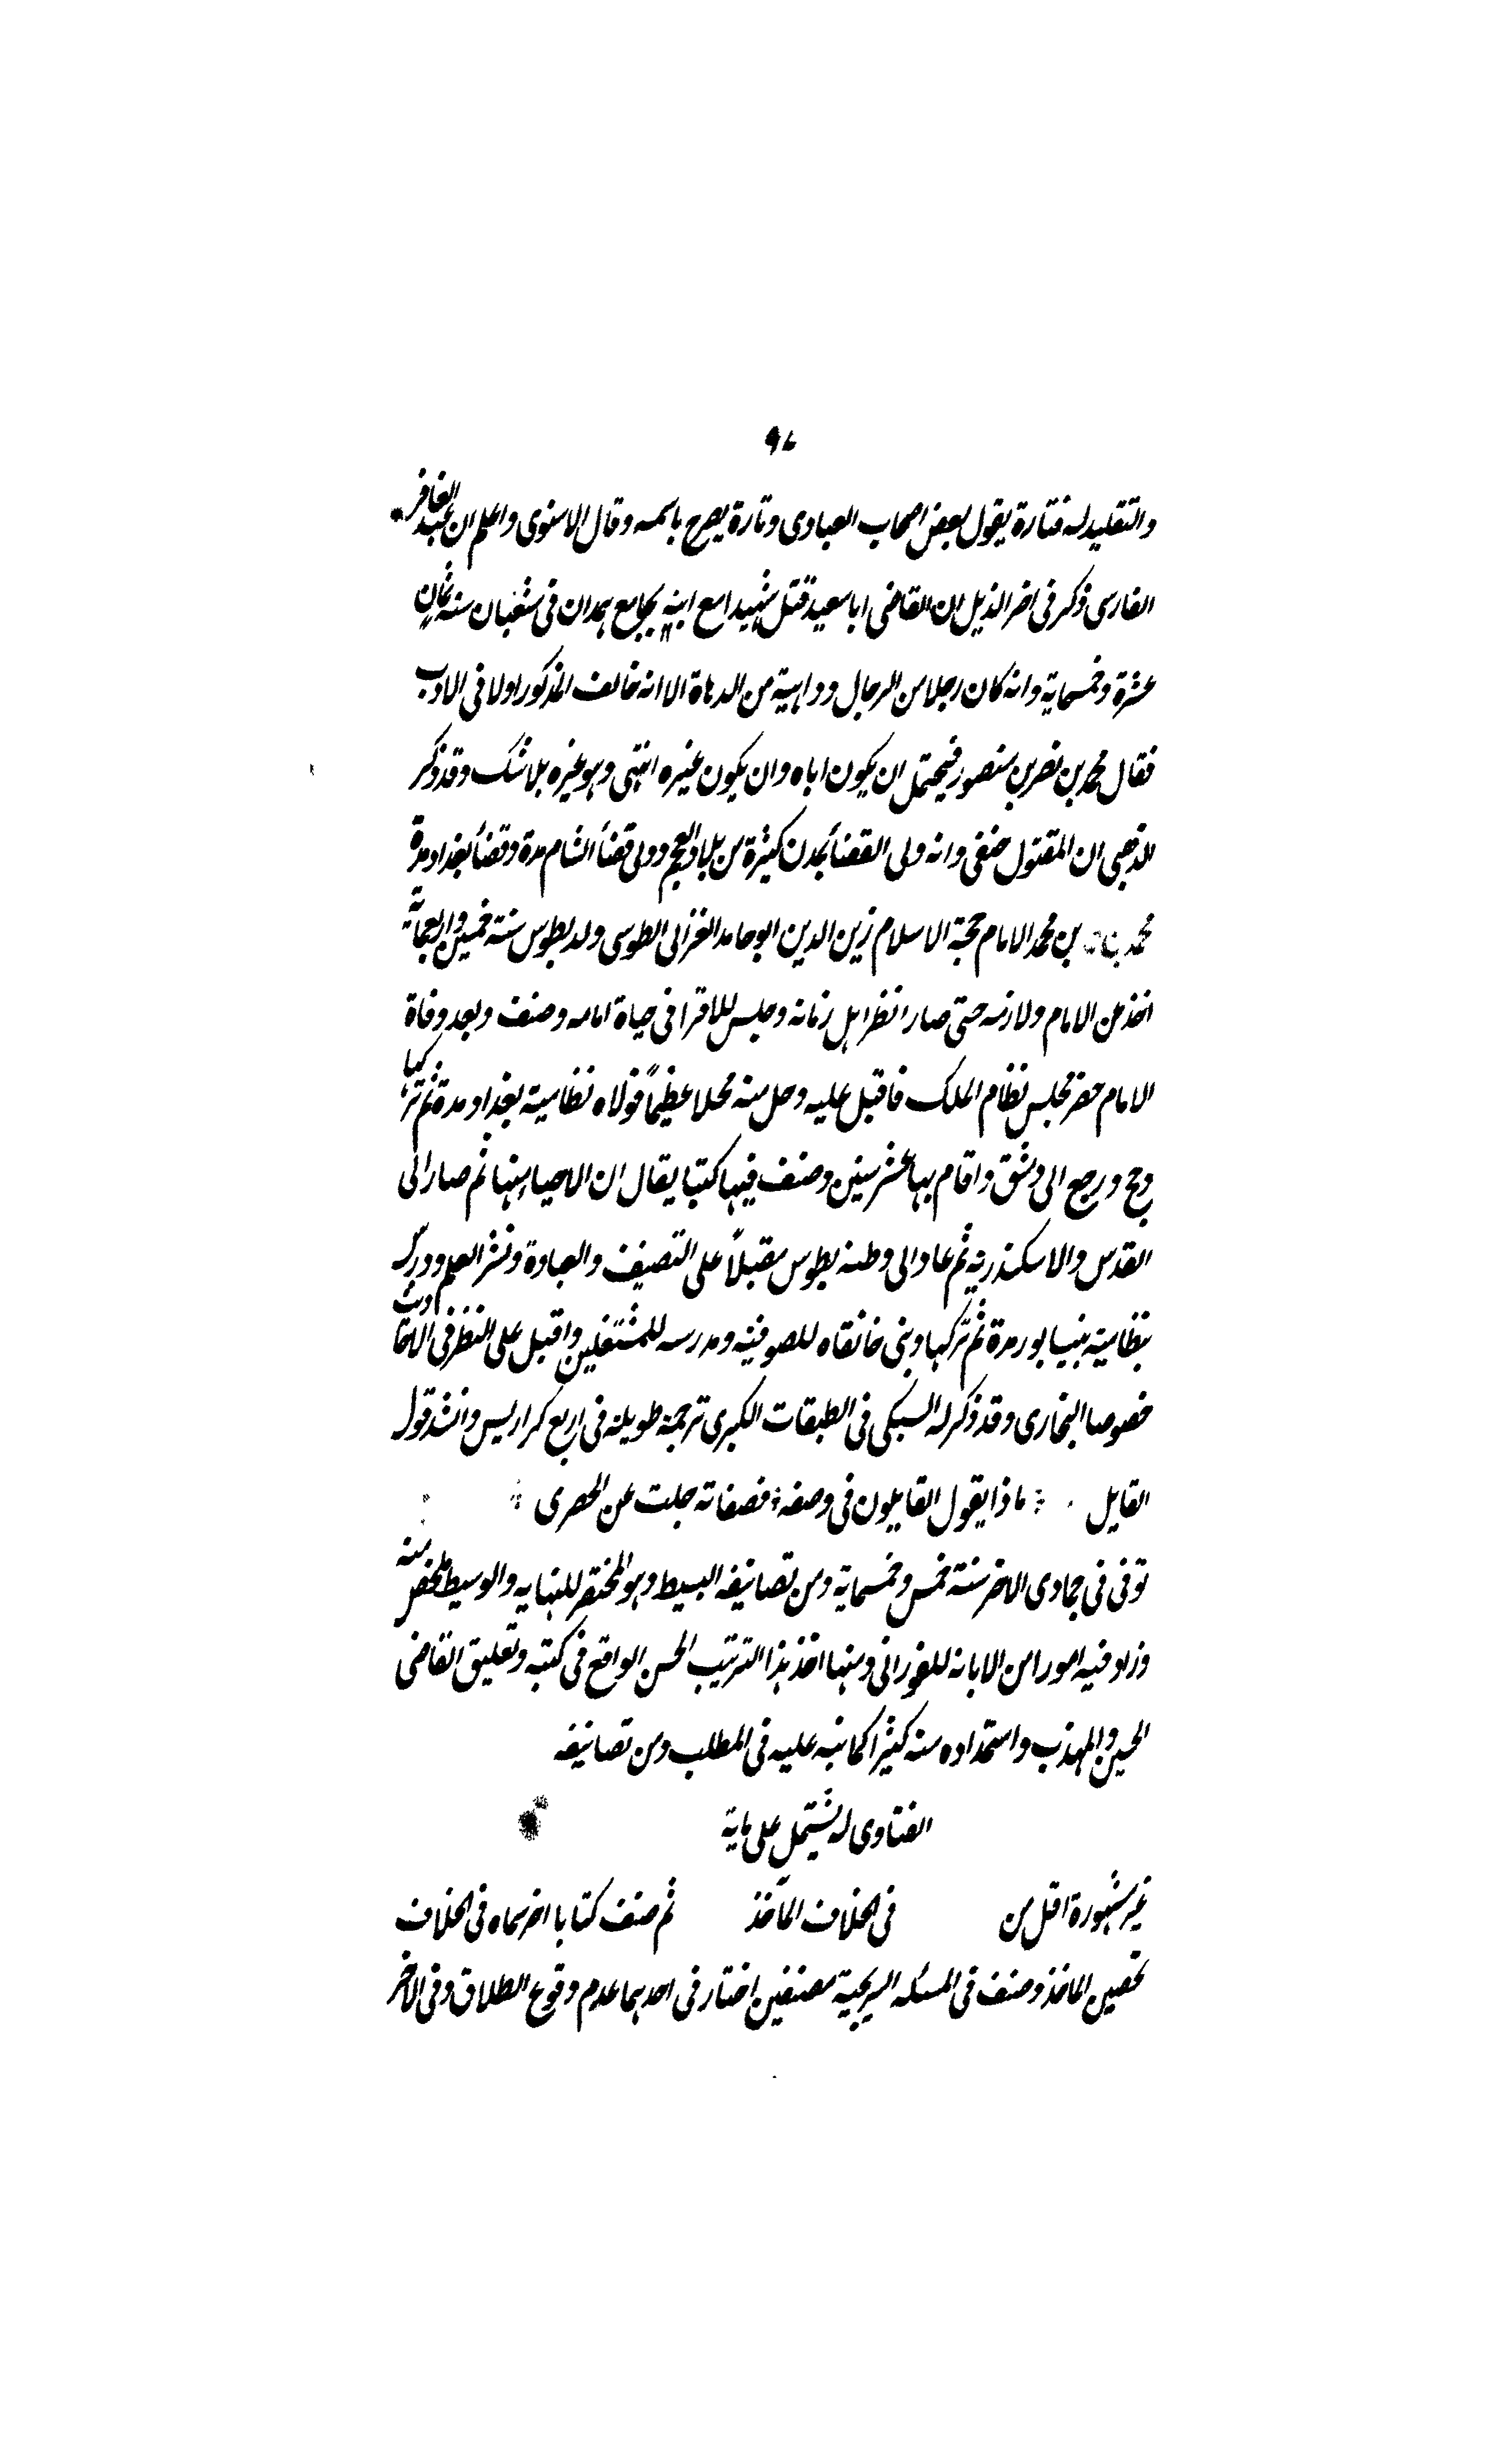 ٩٧
والتقليد له فتارة يقول بعض اصحاب العبادى وتارة يصرح باسمه وقال الاسنوى واعلم ان عبد الغافر
الفارسى ذكر فى اخر الذيل ان القاضى ابا سعيد قتل شهيدا مع ابنه بجامع همدان فى شعبان سنة ثمان
عشرة وخمسماية وانه كان رجلا من الرجال وداهية من الدهاة الا انه خالف المذكور اولا فى الاب
فقال محمد بن نصر بن منصور فيحتمل ان يكون اباه وان يكون غيره انتهى وهو غيره بلا شك وقد ذكر
الذهبى ان المقتول حنفى وانه ولى القضأ بمدن كثيرة من بلاد العجم وولى قضأ الشام مدة وقضأ بغداد مدة
محمد بن محمد الامام حجة الاسلام زين الدين ابو حامد الغزالى الطوسى ولد بطوس سنة خمسين واربعمائة
اخذ عن الامام ولازمه حتى صار انظر اهل زمانه وجلس للاقرا فى حياة امامه وصنف وبعد وفاة
الامام حضر مجلس نظام الملك فاقبل عليه وحل منه محلا عظيماً فولاه نظامية بغداد مدة ثم تركها
وحج ورجع الى دمشق واقام بها عشر سنين وصنف فيها كتبا يقال ان الاحيا منها ثم صار الى
القدس والاسكندرية ثم عاد الى وطنه بطوس مقبلاً على التصنيف والعبادة ونشر العلم ودرس
بنظامية بنيسابور مدة ثم تركها وبنى خانقاه للصوفية ومدرسه للمشتغلين واقبل على النظر فى الاحاديث
خصوصا البخارى وقد ذكر له السبكى فى الطبقات الكبرى ترجمة طويلة فى اربع كراريس وانشد قول
القايل ماذا يقول القايلون فى وصفه فصفاته جلت عن الحصرى
توفى فى جمادى الاخر سنة خمس وخمسماية ومن تصانيفه البسيط وهو المختصر للنهايه والوسيط ملخص منه
وزاد فيه امورا من الابانه للفورانى ومنها اخذ هذا الترتيب الحسن الواقع فى كتبه وتعليق القاضى
الحسين والمهذب واستمداده منه كثيرا كما نبه عليه فى المطلب ومن تصانيفه
الفتاوى له يشتمل على ماية
غير مشهورة اقل من فى الخلاف المآخذ ثم صنف كتابا اخر سماه فى الخلاف
تحصين الماخذ وصنف فى المسئله السريجية مصنفين اختار فى احدهما عدم وقوع الطلاق وفى الاخر